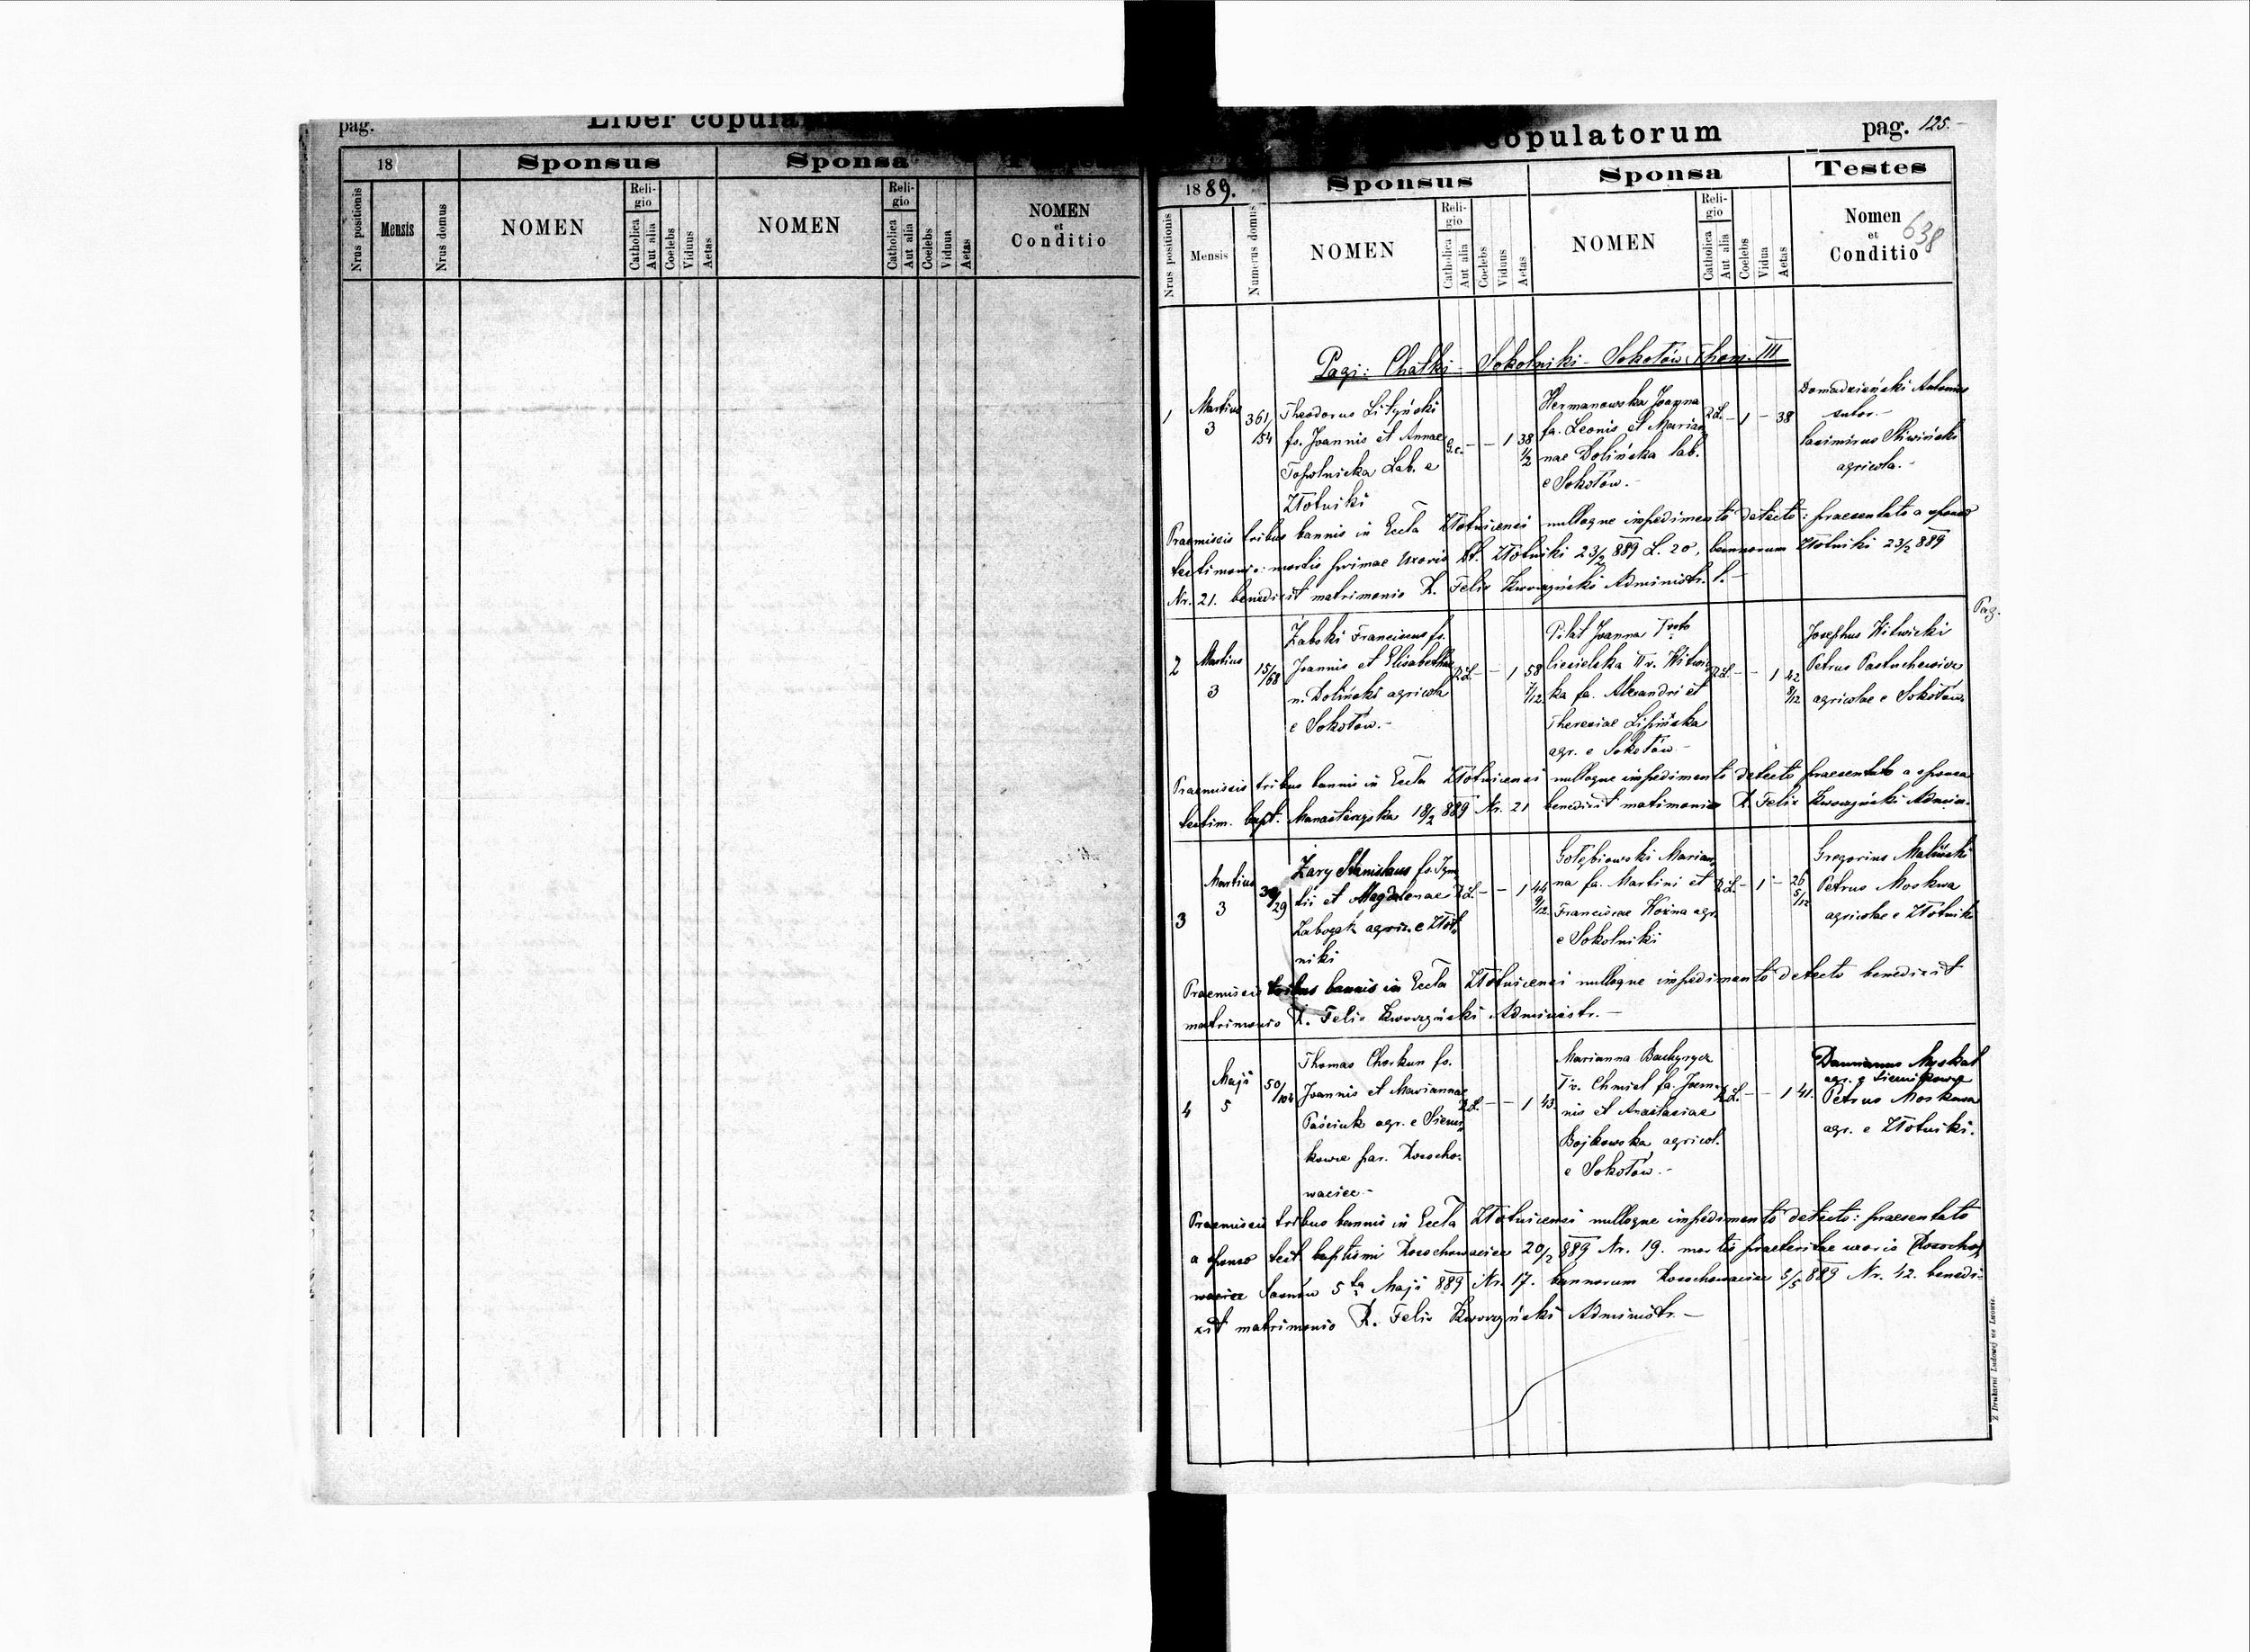 pag.
Liber copula
18
Sponsus
Sponsa
Nrus positionis
Mensis
Nrus domus
NOMEN
Religio
Catholica
Aut alia
Coelebs
Viduus
Aetas
NOMEN
Religio
Catholica
Aut alia
Coelebs
Vidua
Aetas
NOMEN
et
Conditio
copulatorum
pag. 125.
1889.
Sponsus
Sponsa
Testes
Nrus positionis
Mensis
Numerus domus
NOMEN
Religio
Catholica
Aut alia
Coelebs
Viduus
Aetas
NOMEN
Religio
Catholica
Aut alia
Coelebs
Vidua
Aetas
Nomen
et
Conditio
638
Pagi: Chatki - Sokolniki - Sokołów Thom. III
1
Martius
3
361/154
Theodorus Lityński
fs. Joannis et Annae
Topolnicka Lab. e
Złotniki
G.c. - - 1 38 1/2
Hermanowska Joanna
fa. Leonis et Marian
nae Dolińska lab.
e Sokołow.-
R.L. - 1 - 38
Domadzieński Antonius
sutor.-
Casimirus Śliwiński
agricola.-
Praemissis tribus bannis in Eccla Złotnicensi nulloque impedimento detecto: praesentato a sponso
testimonio: mortis primae uxoris dt. Złotniki 23/2 889 L. 20, bannorum Złotniki 23/2 889
Nr. 21. benedixit matrimonio X. Felix Kworzyński Administr. l.-
Pag.
2
Martius
3
15/68
Żabski Franciscus fs.
Joannis et Elisabethae
n. Doliński agricola
e Sokołow.-
R.L. - - 1 58 7/12
Pilat Joanna Ivoto
Ciesielska IIv. Witwic
ka fa. Alexandri et
Theresiae Lipińska
agr. e Sokołow.-
R.L. - - 1 42 8/12
Josephus Witwicki
Petrus Pastuchewicz
agricolae e Sokołow.
Praemissis tribus bannis in Eccla Złotnicensi nulloque impedimento detecto praesentato a sponsa
testim. bapt. Monasterzyska 18/2 889 Nr. 21 benedixit matrimonio X. Felix Kworzyński Admin.
3
Martius
3
39/29
Zary Stanislaus fs. Igna
tii et Magdalenae
agric. e Złot„
niki
R.L. - - 1 44 9/12
Gołębiowski Marian„
na fa. Martini et
Franciscae Woźna agr.
e Sokolniki
R.L. - 1 - 26 5/12
Gregorius Maliński
Petrus Moskwa
agricolae e Złotniki
Praemissis tribus bannis in Eccla Złotnicensi nulloque impedimento detecto benedixit
matrimonio X. Felix Kworzyński Administr.-
4
Maji
5
50/104
Thomas Chorkun fs.
Joannis et Mariannae
Paściuk agr. e Siemi„
kowce par. Rosocho-
waciec.-
R.L. - - 1 43.
Marianna Bachgrycz
Iv. Chmiel fa. Joan„
nis et Anastasiae
Bojkowska agricol.
e Sokołow.-
R.L. - - 1 41.
Damianus Myskal
agr. z Siemikowce
Petrus Moskwa
agr. e Złotniki.
Praemissis tribus bannis in Eccla Złotnicensi nulloque impedimento detecto: praesentato
a sponso test. baptismi Rosochowaciec 20/2 889 Nr. 19. mortis praeteritae uxoris Rosocho
waciec Sosnów 5ta Maji 889 Nr. 17. bannorum Rosochowaciec 5/5 889 Nr. 42. benedi-
xit matrimonio X. Felix Kworzyński Administr.-
Z Drukarni Ludowej we Lwowie.